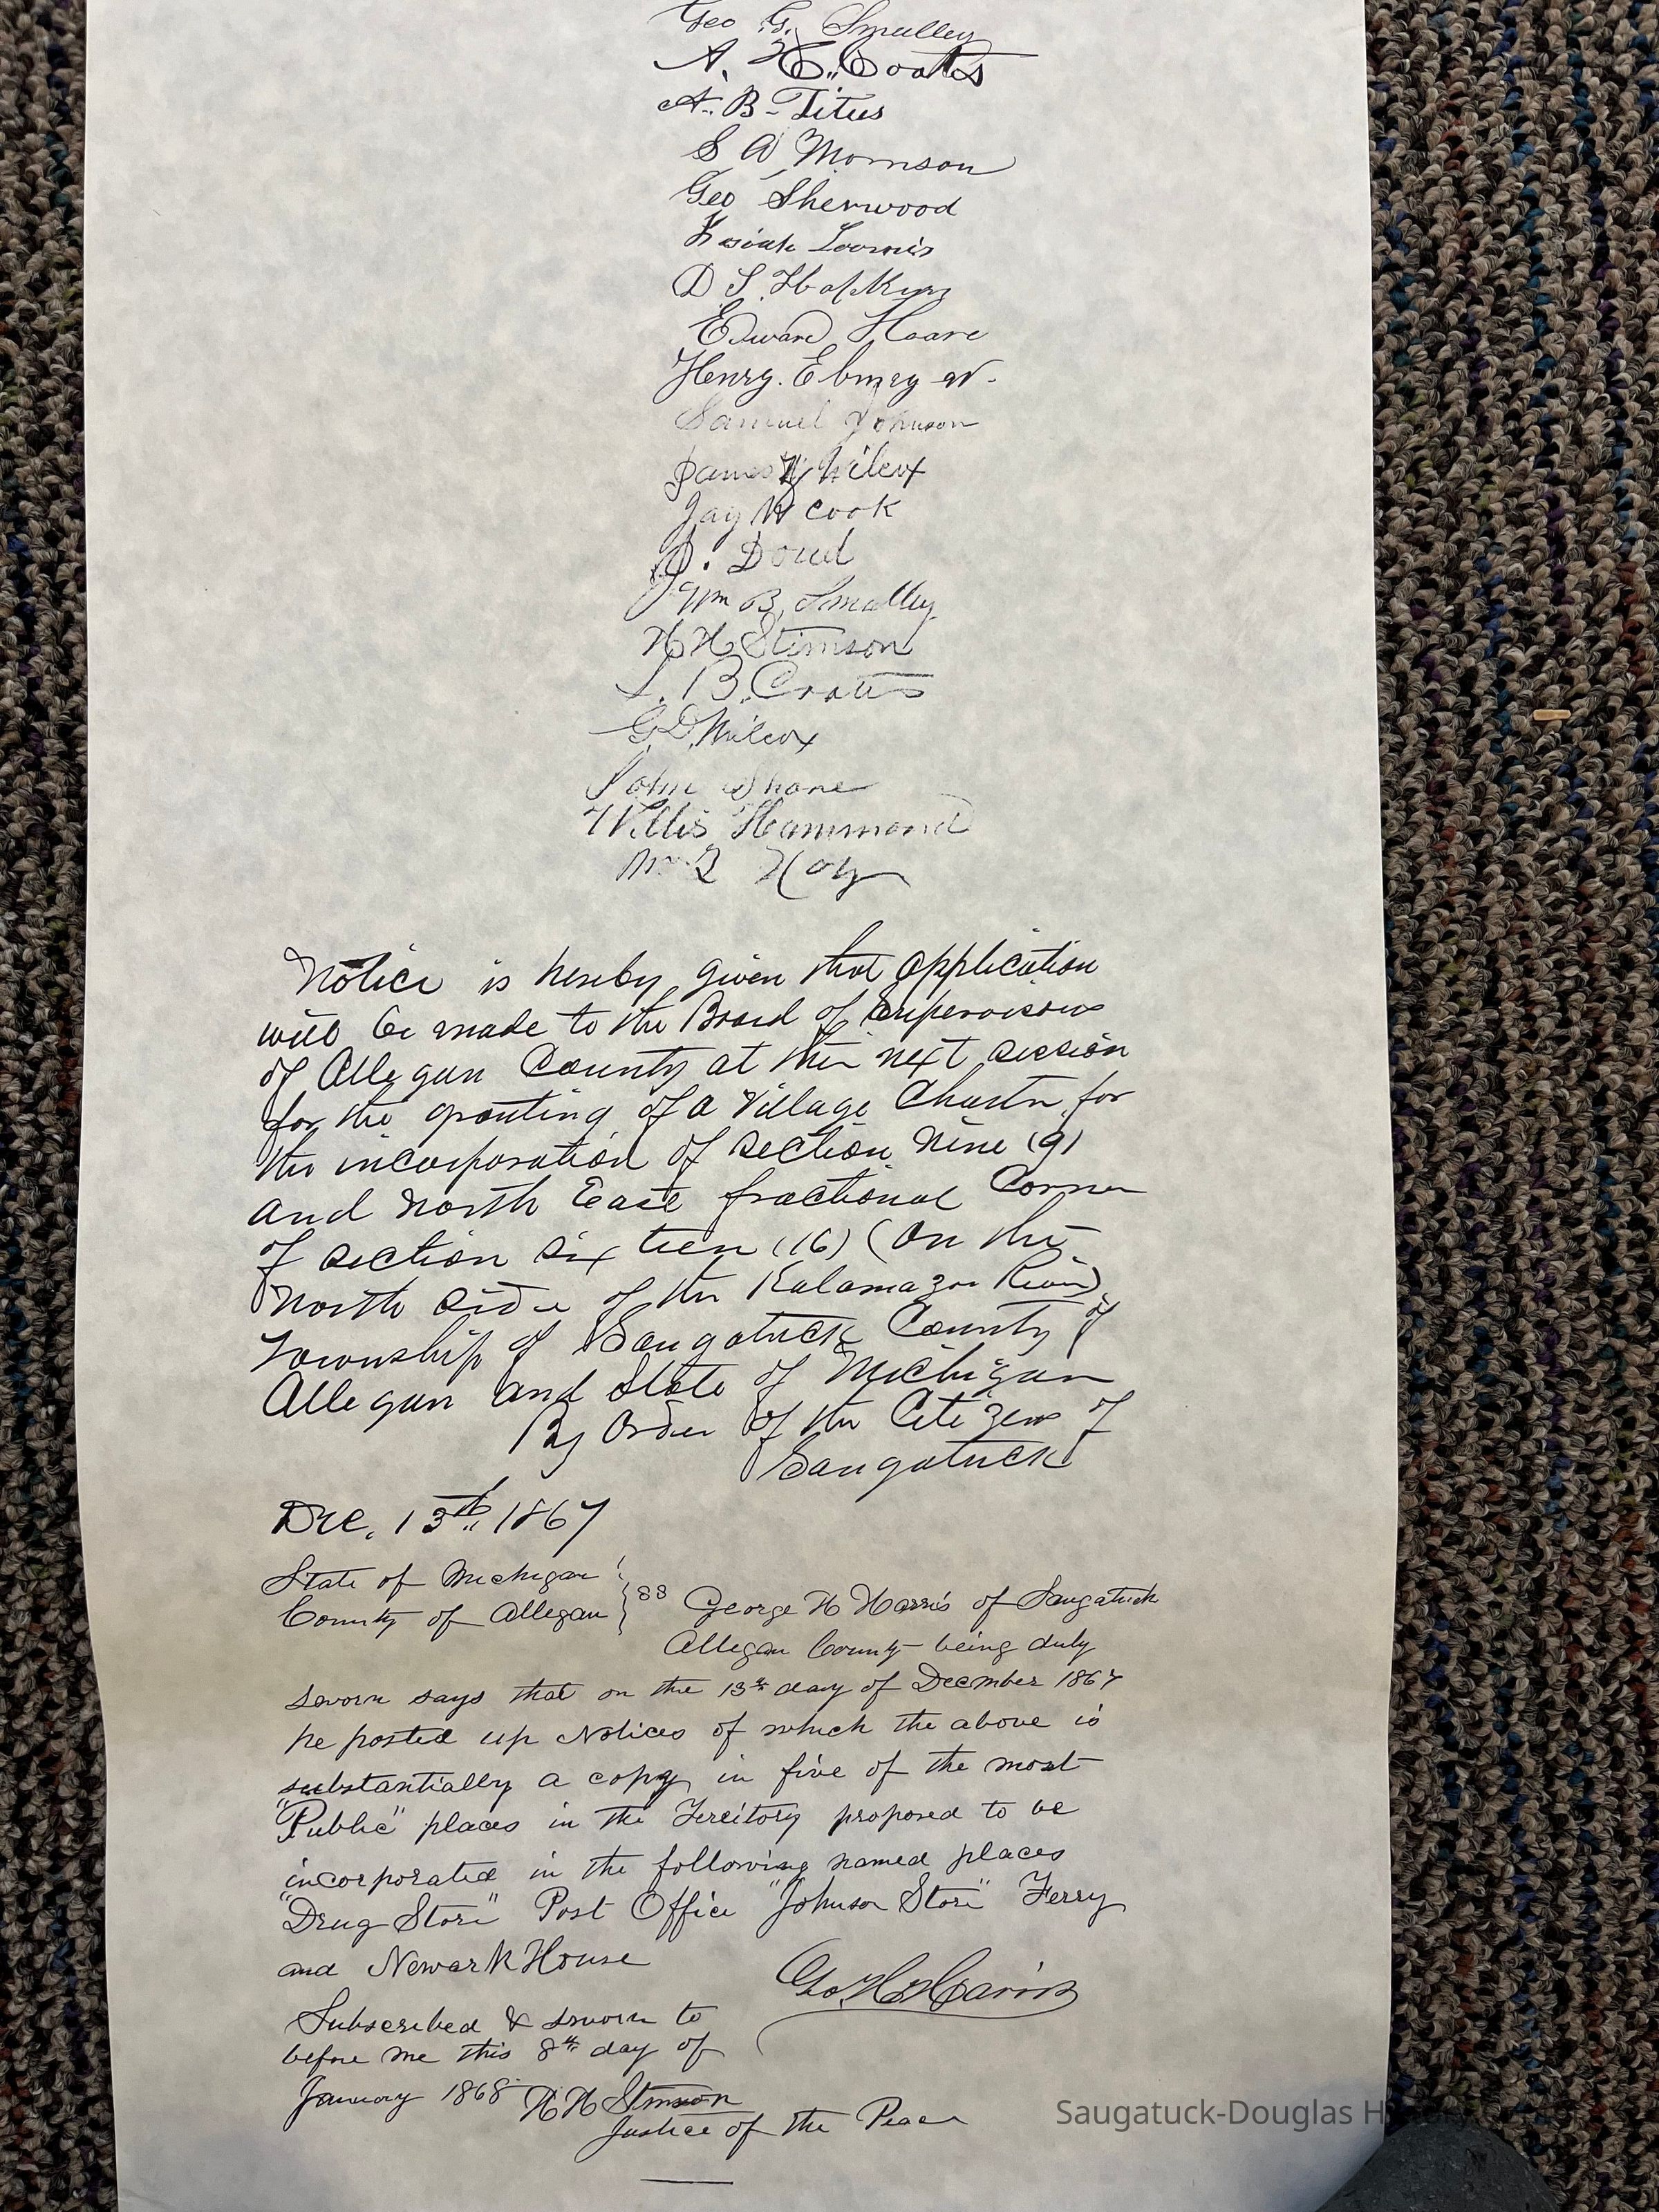 Geo G. Smalley
A. H. Coates
A. B. Titus
S A Morrison
Geo Sherwood
Josiah Loomis
D S. Hopkins
Edward Hoare
Henry. Ebmey
Samuel Johnson
James Wilcox
Jay W Cook
Doud
Wm B. Smalley
H H Stimson
L. B. Coates
G D. Wilcox
John Shane
Willis Hammond
Hoy
Notice is hereby given that application
will be made to the Board of Supervisors
of Allegan County at their next session
for the granting of a Village Charter for
the incorporation of section Nine (9)
and North East fractional Corner
of section sixteen (16) (On the
North side of the Kalamazoo River)
Township of Saugatuck County of
Allegan and State of Michigan
By Order of the Citizens of
Saugatuck
Dec. 13th 1867
State of Michigan
County of Allegan } SS George H Harris of Saugatuck
Allegan County being duly
sworn says that on the 13th day of December 1867
he posted up Notices of which the above is
substantially a copy in five of the most
"Public" places in the Teritory proposed to be
incorporated in the following named places
"Drug Store" Post Office "Johnson Store" Ferry
and Newark House
Geo H Harris
Subscribed & sworn to
before me this 8th day of
January 1868 H H Stimson
Justice of the Peace
Saugatuck-Douglas